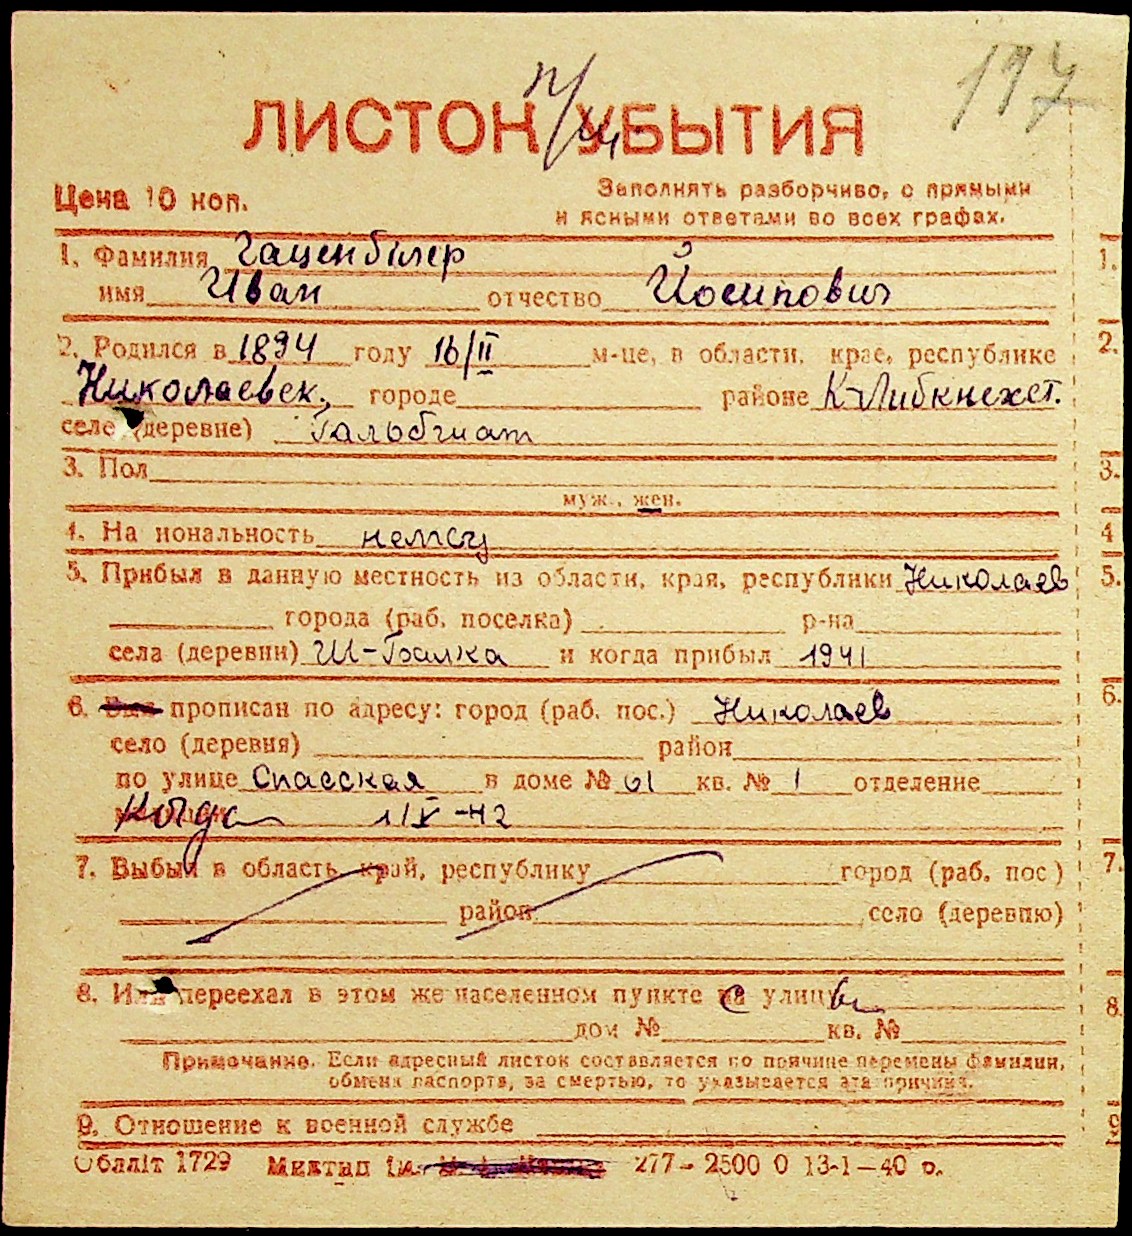 197
п/
ЛИСТОК УБЫТИЯ
Цена 10 коп.
Заполнять разборчиво, с прямыми
и ясными ответами во всех графах.
1. Фамилия Гаценбілер
имя Иван отчество Йосипович
2. Родился в 1894 году 16/II м-це, в области, крае, республике
Николаевск. городе районе К-Либкнехст.
селе (деревне) Гальбшат
3. Пол
муж., жен.
4. На иональность немец
5. Прибыл в данную местность из области, края, республики Николаев
города (раб. поселка) р-на
села (деревни) Ш-Балка и когда прибыл 1941
6. прописан по адресу: город (раб. пос.) Николаев
село (деревня) район
по улице Спасская в доме № 61 кв. № 1 отделение
Когда 1/IV-42
7. Выбыл в область, край, республику город (раб. пос)
район село (деревню)
8. Или переехал в этом же населенном пункте с улицы
дом № кв. №
Примечание. Если адресный листок составляется по причине перемены фамилии,
обмена паспорта, за смертью, то указывается эта причина.
9. Отношение к военной службе
Облліт 1729 277-2500 0 13-1-40 р.
1.
2.
3.
4
5.
6.
7.
8.
9